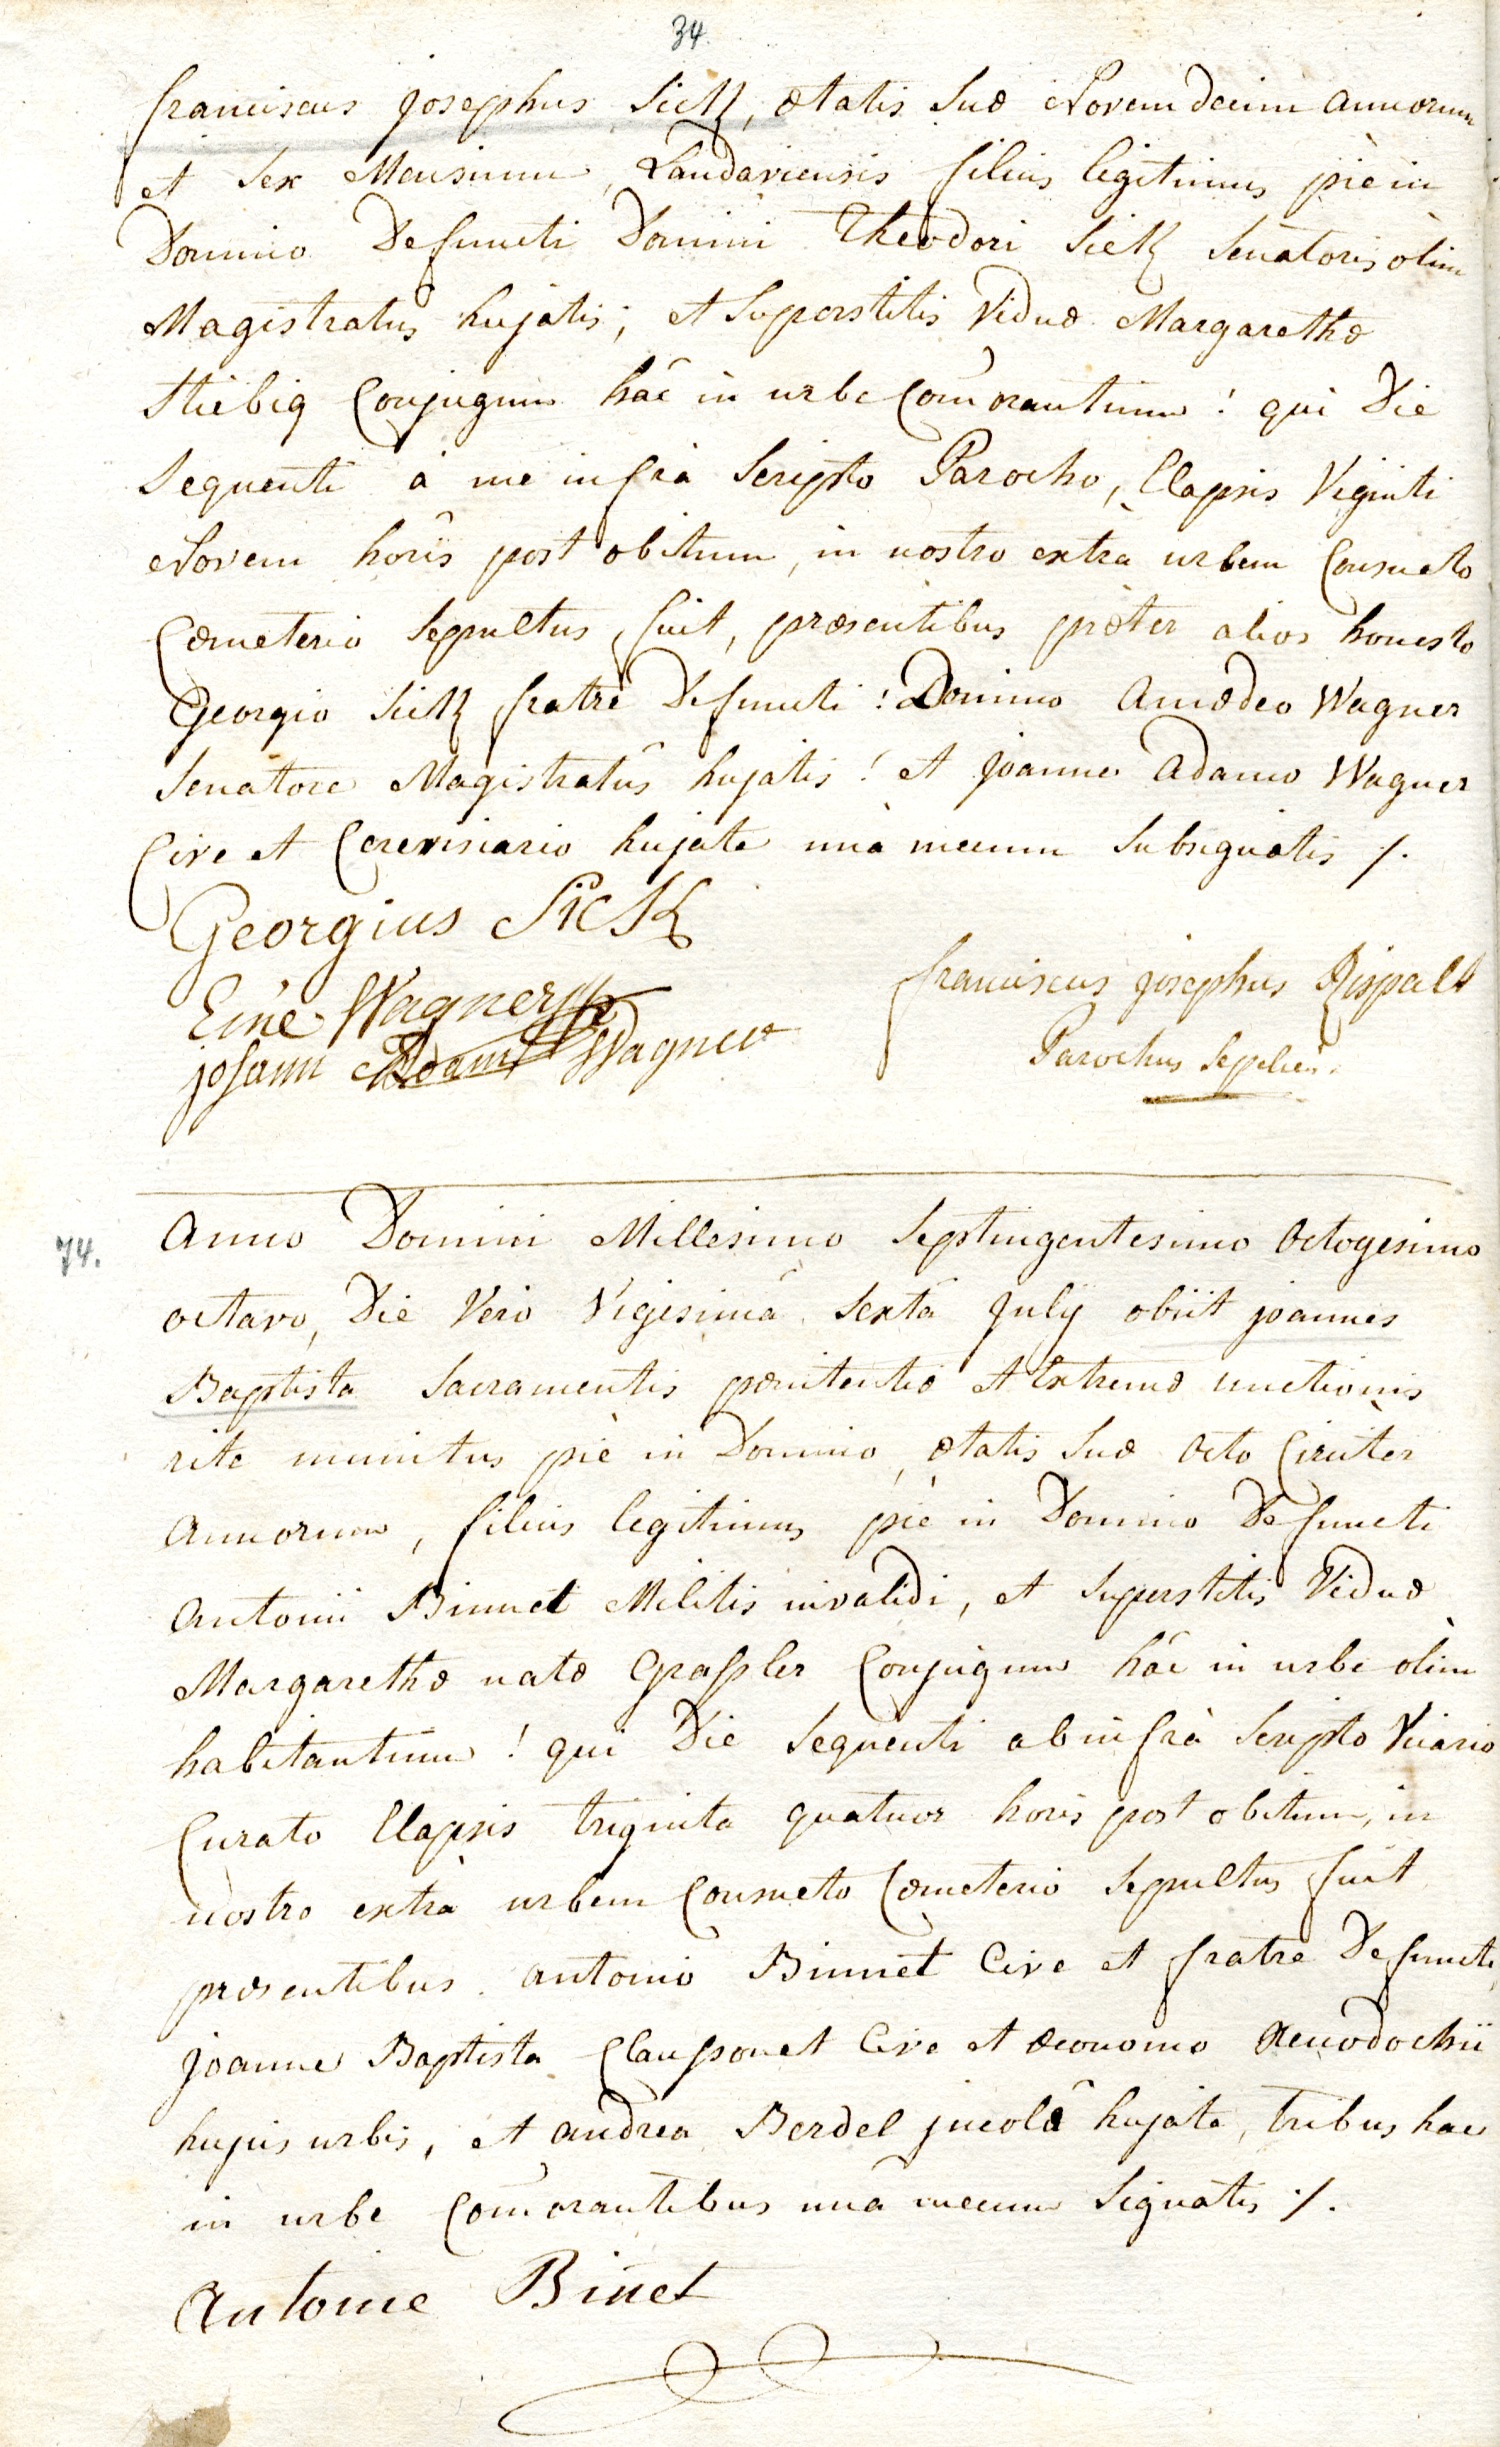 34.
franciscus josephus Sick, ætatis suæ Novendecim annorum
et sex Mensium, Landaviensis filius legitimus piè in
Domino Defuncti Domini Theodori Sick Senatoris olim
Magistratus hujatis; et Superstitis Viduæ Margarethæ
Stiebig Conjugum hâc in urbe Com̃orantium: qui Die
Sequenti à me infrà Scripto Parocho, Elapsis Viginti
Novem horis post obitum, in nostro extrà urbem Consueto
Cœmeterio Sepultus fuit, præsentibus præter alios honesto
Georgio Sick fratre Defuncti: Domino Amædeo Wagner
Senatore Magistratûs hujatis: et joanne Adamo Wagner
Cive et Cerevisiario hujate unà mecum Subsignatis ./.
Georgius Sick
Wagner
johann Adam Wagner
franciscus josephus Rispalt
Parochus Sepeliens
74.
Anno Domini Millesimo Septingentesimo Octogesimo
octavo, Die Vero Vigesimâ Sextâ July obiit joannes
Baptista Sacramentis pœnitentiæ et Extremæ unctionis
rite munitus piè in Domino, ætatis suæ octo Circiter
annorum, filius legitimus piè in Domino Defuncti
Antonii Binnet Militis invalidi, et Superstitis Viduæ
Margarethæ natæ Grassler Conjugum hâc in urbe olim
habitantium: qui Die Sequenti ab infrà Scripto Vicario
Curato Elapsis triginta quatuor horis post obitum, in
nostro extrà urbem Consueto Cœmeterio Sepultus fuit
præsentibus Antonio Binnet Cive et fratre Defuncti,
joanne Baptista Clausonet Cive et œconomo Xenodochii
hujus urbis, et Andrea Berdel jncolâ hujate, tribus hac
in urbe Com̃orantibus unà mecum Signatis ./.
Antoine Binet